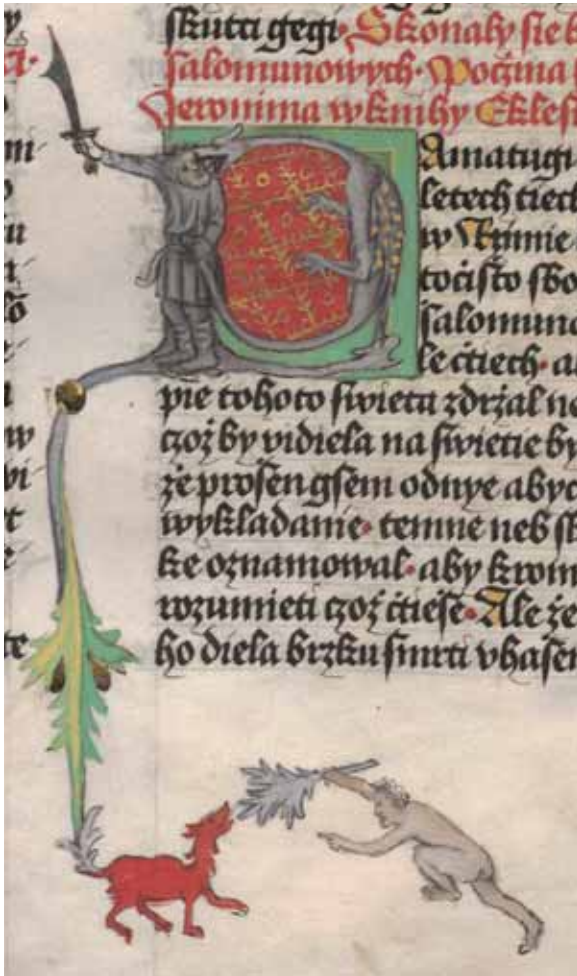 ſkutci gegi· Skonaly ſie k
ſalomunowych· Poċina
Jeronima w knihy Ekleſi
Amatugi
letech tiech
w Rimie
toċiſto ſbo
ſalomuno
le ċtiech· a
pie tohoto ſwieta zdrżal ne
czoż by vidiela na ſwietie by
że proſen gſem odnye abyc
wykladanie· temne neb ſk
ke oznamowal· aby krom
rozumieti czoż ċtieſe· Ale że
ho diela brzku ſmrti vhaſen